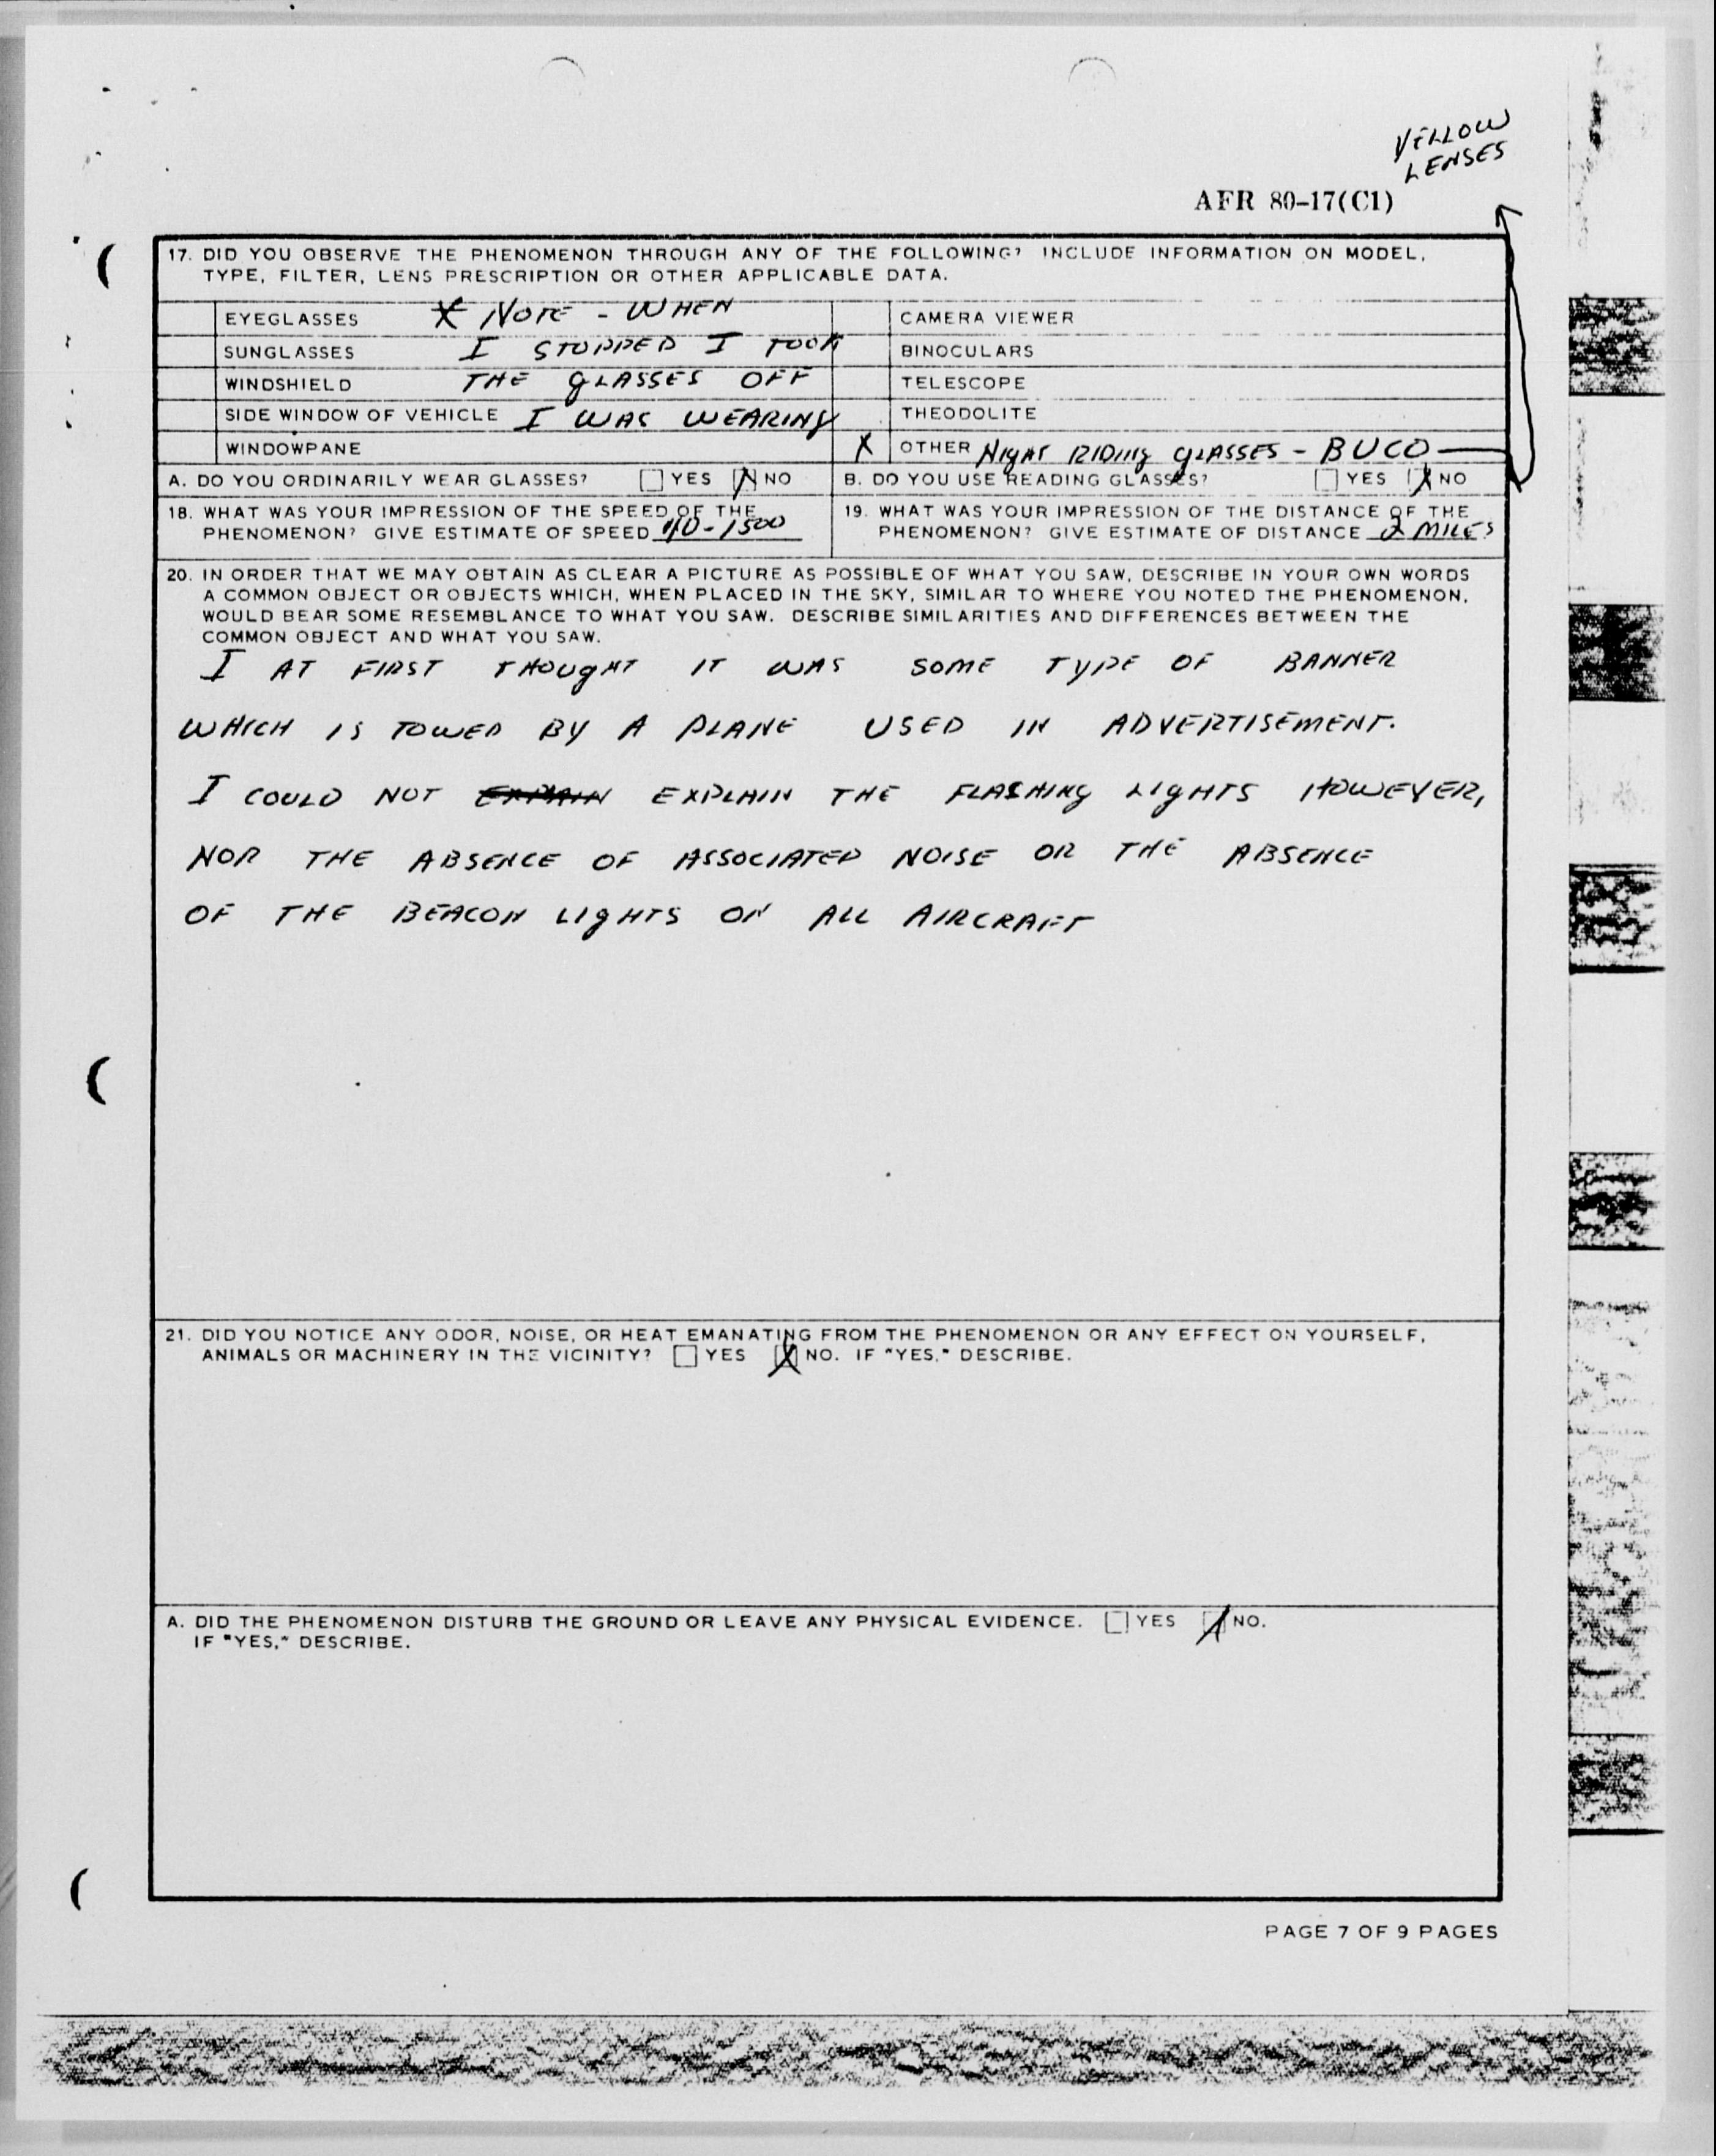 YELLOW
LENSES
AFR 80-17(C1)
17. DID YOU OBSERVE THE PHENOMENON THROUGH ANY OF THE FOLLOWING? INCLUDE INFORMATION ON MODEL,
TYPE, FILTER, LENS PRESCRIPTION OR OTHER APPLICABLE DATA.
EYEGLASSES * NOTE - WHEN CAMERA VIEWER
SUNGLASSES I STOPPED I TOOK BINOCULARS
WINDSHIELD THE GLASSES OFF TELESCOPE
SIDE WINDOW OF VEHICLE I WAS WEARING THEODOLITE
WINDOWPANE X OTHER NIGHT RIDING GLASSES - BUCO
A. DO YOU ORDINARILY WEAR GLASSES? YES X NO B. DO YOU USE READING GLASSES? YES X NO
18. WHAT WAS YOUR IMPRESSION OF THE SPEED OF THE
PHENOMENON? GIVE ESTIMATE OF SPEED 40-1500
19. WHAT WAS YOUR IMPRESSION OF THE DISTANCE OF THE
PHENOMENON? GIVE ESTIMATE OF DISTANCE 2 MILES
20. IN ORDER THAT WE MAY OBTAIN AS CLEAR A PICTURE AS POSSIBLE OF WHAT YOU SAW, DESCRIBE IN YOUR OWN WORDS
A COMMON OBJECT OR OBJECTS WHICH, WHEN PLACED IN THE SKY, SIMILAR TO WHERE YOU NOTED THE PHENOMENON,
WOULD BEAR SOME RESEMBLANCE TO WHAT YOU SAW. DESCRIBE SIMILARITIES AND DIFFERENCES BETWEEN THE
COMMON OBJECT AND WHAT YOU SAW.
I AT FIRST THOUGHT IT WAS SOME TYPE OF BANNER
WHICH IS TOWED BY A PLANE USED IN ADVERTISEMENT.
I COULD NOT EXPLAIN THE FLASHING LIGHTS HOWEVER,
NOR THE ABSENCE OF ASSOCIATED NOISE OR THE ABSENCE
OF THE BEACON LIGHTS ON ALL AIRCRAFT
21. DID YOU NOTICE ANY ODOR, NOISE, OR HEAT EMANATING FROM THE PHENOMENON OR ANY EFFECT ON YOURSELF,
ANIMALS OR MACHINERY IN THE VICINITY? YES X NO. IF "YES," DESCRIBE.
A. DID THE PHENOMENON DISTURB THE GROUND OR LEAVE ANY PHYSICAL EVIDENCE. YES X NO.
IF "YES," DESCRIBE.
PAGE 7 OF 9 PAGES